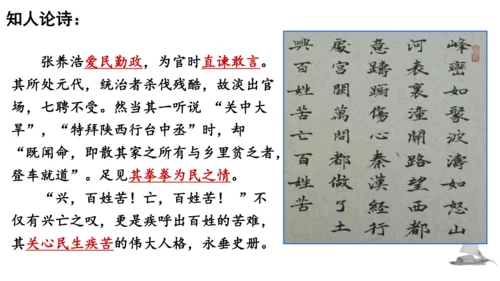 知人论诗：
张养浩爱民勤政，为官时直谏敢言。
其所处元代，统治者杀伐残酷，故淡出官
场，七聘不受。然当其一听说 “关中大
旱”，“特拜陕西行台中丞”时，却
“既闻命，即散其家之所有与乡里贫乏者，
登车就道”。足见其拳拳为民之情。
“兴，百姓苦！亡，百姓苦！ ”不
仅有兴亡之叹，更是疾呼出百姓的苦难，
其关心民生疾苦的伟大人格，永垂史册。
峰巒如聚波濤如怒山
河表裏潼關路望西都
意躊躇傷心秦漢經行
處宮闕萬間都做了土
興百姓苦亡百姓苦